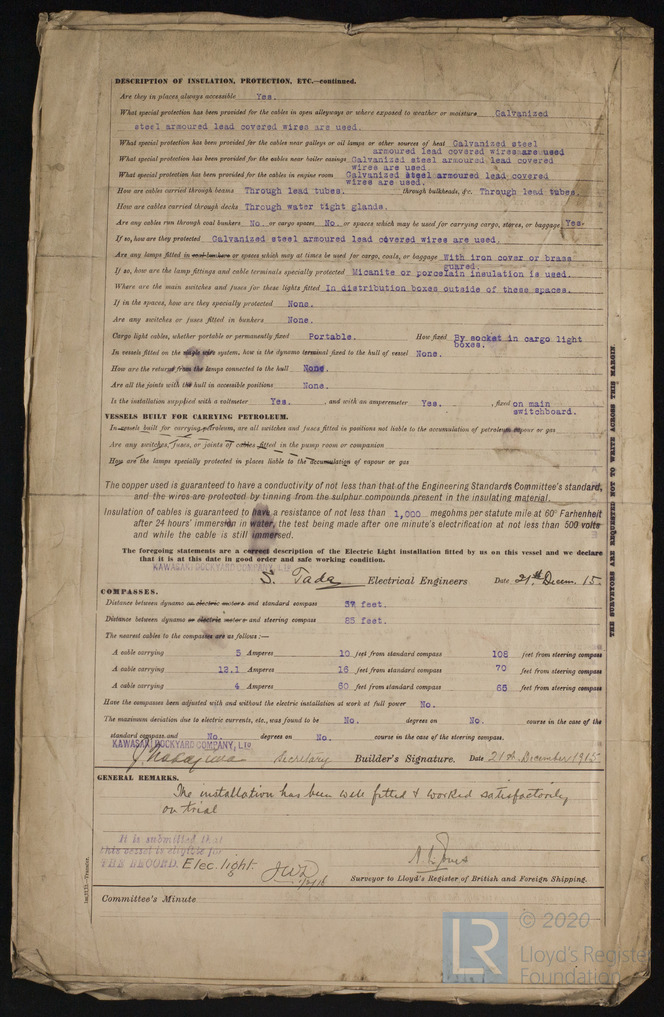 DESCRIPTION OF INSULATION, PROTECTION, ETC.—continued.
Are they in places always accessible Yes.
What special protection has been provided for the cables in open alleyways or where exposed to weather or moisture Galvanized
steel armoured lead covered wires are used.
What special protection has been provided for the cables near galleys or oil lamps or other sources of heat Galvanized steel
armoured lead covered wires are used
What special protection has been provided for the cables near boiler casings Galvanized steel armoured lead covered
wires are used
What special protection has been provided for the cables in engine room Galvanized steel armoured lead covered
wires are used.
How are cables carried through beams Through lead tubes. through bulkheads, &c. Through lead tubes.
How are cables carried through decks Through water tight glands.
Are any cables run through coal bunkers No. or cargo spaces No. or spaces which may be used for carrying cargo, stores, or baggage Yes.
If so, how are they protected Galvanized steel armoured lead covered wires are used.
Are any lamps fitted in coal bunkers or spaces which may at times be used for cargo, coals, or baggage With iron cover or brass
guard.
If so, how are the lamp fittings and cable terminals specially protected Micanite or porcelain insulation is used.
Where are the main switches and fuses for these lights fitted In distribution boxes outside of these spaces.
If in the spaces, how are they specially protected None.
Are any switches or fuses fitted in bunkers None.
Cargo light cables, whether portable or permanently fixed Portable. How fixed By socket in cargo light
boxes.
In vessels fitted on the single wire system, how is the dynamo terminal fixed to the hull of vessel None.
How are the returns from the lamps connected to the hull None.
Are all the joints with the hull in accessible positions None.
Is the installation supplied with a voltmeter Yes. , and with an amperemeter Yes. , fixed on main
switchboard.
VESSELS BUILT FOR CARRYING PETROLEUM.
In vessels built for carrying petroleum, are all switches and fuses fitted in positions not liable to the accumulation of petroleum vapour or gas
Are any switches, fuses, or joints of cables fitted in the pump room or companion
How are the lamps specially protected in places liable to the accumulation of vapour or gas
The copper used is guaranteed to have a conductivity of not less than that of the Engineering Standards Committee's standard,
and the wires are protected by tinning from the sulphur compounds present in the insulating material.
Insulation of cables is guaranteed to have a resistance of not less than 1,000 megohms per statute mile at 60° Farhenheit
after 24 hours' immersion in water, the test being made after one minute's electrification at not less than 500 volts
and while the cable is still immersed.
The foregoing statements are a correct description of the Electric Light installation fitted by us on this vessel and we declare
that it is at this date in good order and safe working condition.
KAWASAKI DOCKYARD COMPANY, Ltd
S. Tada Electrical Engineers Date 21st Decem. 15.
COMPASSES.
Distance between dynamo or electric motors and standard compass 57 feet.
Distance between dynamo or electric motors and steering compass 85 feet.
The nearest cables to the compasses are as follows:—
A cable carrying 5 Amperes 10 feet from standard compass 108 feet from steering compass
A cable carrying 13.1 Amperes 16 feet from standard compass 70 feet from steering compass
A cable carrying 4 Amperes 60 feet from standard compass 65 feet from steering compass
Have the compasses been adjusted with and without the electric installation at work at full power No.
The maximum deviation due to electric currents, etc., was found to be No. degrees on No. course in the case of the
standard compass and No. degrees on No. course in the case of the steering compass.
KAWASAKI DOCKYARD COMPANY, Ltd
Secretary Builder's Signature. Date 21st December 1915
GENERAL REMARKS.
The installation has been well fitted & worked satisfactorily
on trial
It is submitted that
this vessel is eligible for
THE RECORD. Elec. light
Surveyor to Lloyd's Register of British and Foreign Shipping.
Committee's Minute
THE SURVEYORS ARE REQUESTED NOT TO WRITE ACROSS THIS MARGIN.
© 2020
LR
Lloyd's Register
Foundation